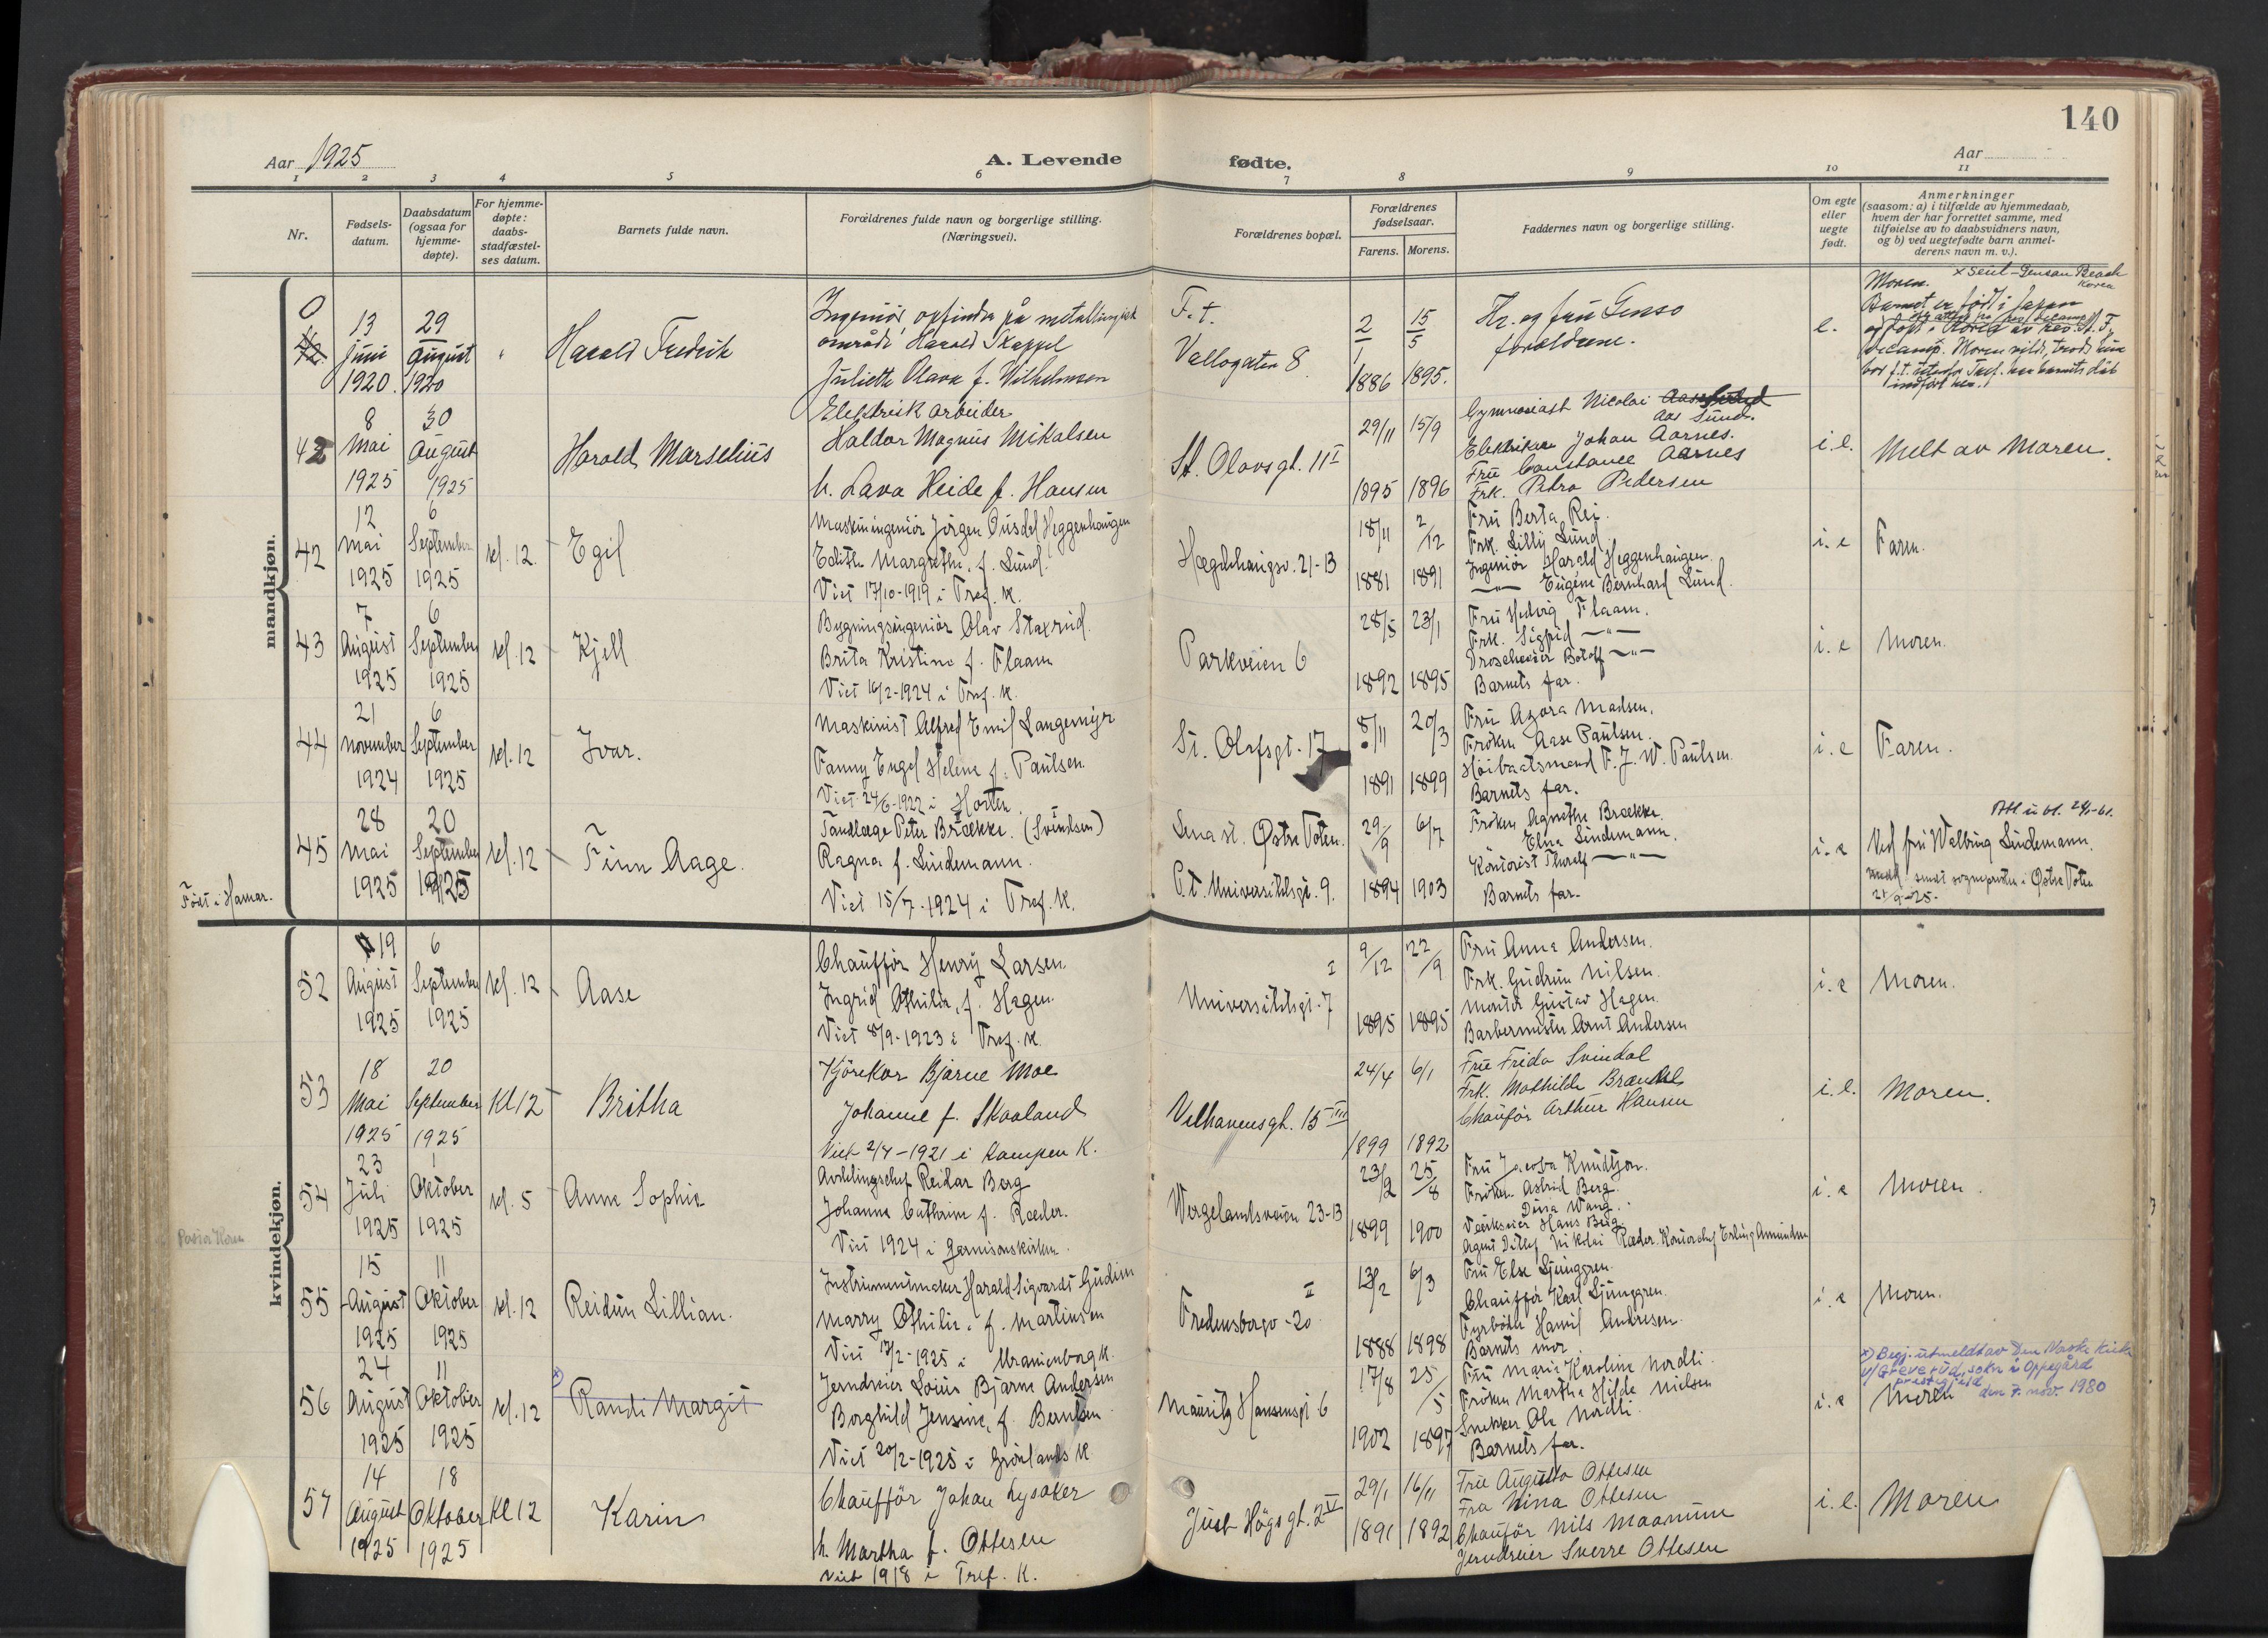 140
Aar 1925
A. Levende fødte.
Aar
1 2 3 4 5 6 7 8 9 10 11
Nr.
Fødsels-
datum.
Daabsdatum
(ogsaa for
hjemme-
døpte).
For hjemme-
døpte:
daabs-
stadfæstel-
ses datum.
Barnets fulde navn.
Forældrenes fulde navn og borgerlige stilling.
(Næringsvei).
Forældrenes bopæl.
Forældrenes
fødselsaar.
Farens. Morens.
Faddernes navn og borgerlige stilling.
Om egte
eller
uegte
født.
Anmerkninger
(saasom: a) i tilfælde av hjemmedaab,
hvem der har forrettet samme, med
tilføielse av to daabsvidners navn,
og b) ved uegtefødte barn anmel-
derens navn m. v.).
mandkjøn.
0
13 Juni 1920.
29 August 1920
Harald Fredrik
Ingeniør, opfinder på metallurgisk
område, Harald Skappel
Juliette Olava f. Wilhelmsen
F. t.
Vallogaten 8
2/1 1886
15/5 1895.
Hr. og fru Genso
foreldrene.
e.
Moren.
x Seul - Gensan Beach
Korea
Barnet er født i Japan
42
8 Mai 1925
30 August 1925
Harald Marselius
Elektrisk arbeider
Haldor Magnus Mikalsen
h. Lava Heide f. Hansen
St. Olavsgt. 11 I
29/11 1895
15/9 1896
Gymnasiast Nicolai
Aas Sund.
Elektriker Johan Aarnes.
Fru Constance Aarnes
Frk. Petra Pedersen
i.e.
Melt av Moren.
42
12 Mai 1925
6 September 1925
kl. 12.
Egil
Maskiningeniør Jørgen Ousdal Heggenhaugen
Edith Margrethe, f. Lund.
Viet 17/10-1919 i Tref. K.
Hægdehaugsv. 21-13
18/11 1881
2/12 1891
Fru Berta Rei.
Frk. Lilly Lund
Ingeniør Harald Heggenhaugen.
—"— Eugene Bernhard Lund.
i. e
Faren.
43
7 August 1925
6 September 1925
kl. 12
Kjell
Bygningsingeniør Olav Staxrud.
Brita Kristine f. Flaam
Viet 16/2-1924 i Tref. K.
Parkveien 6
28/5 1892
23/1 1895
Fru Hedvig Flaam.
Frk. Sigrid —"—
Droscheeier Botolf —"—
Barnets far.
i. e
Moren.
44
21 November 1924
6 September 1925
kl. 12
Ivar.
Maskinist Alfred Emil Langemyr
Fanny Engel Helene f. Paulsen
Viet 24/6-1922 i Horten.
St. Olafsgt. 17
8/11 1891
20/3 1899
Fru Agora Madsen.
Frøken Aase Paulsen.
Høibaatsmand F. J. W. Paulsen.
Barnets far.
i. e
Faren.
45
Født i Hamar.
28 Mai 1925
20 September 1925
kl. 12
Finn Aage.
Tandlæge Peter Brække. (Svendsen)
Ragna f. Lindemann.
Viet 15/7-1924 i Tref. K.
Lena st. Østre Toten.
P.t. Universitetsgt. 9.
29/9 1894
6/7 1903
Frøken Agnethe Brække.
Elna Lindemann.
Kontorist Thoralf —"—
Barnets far.
i. e
Ved fru Walborg Lindemann.
meld. sendt sognepresten i Østre Toten
21/9-25.
kvindekjøn.
52
19 August 1925
6 September 1925
kl. 12
Aase
Chauffør Henry Larsen.
Ingrid Othilie, f. Hagen.
Viet 8/9-1923 i Tref. K.
Universitetsgt. 7 I
9/12 1895
22/9 1895
Fru Anna Andersen.
Frk. Gudrun Nilsen.
Montør Gustav Hagen.
Barbermester Arnt Andersen
i. e
Moren.
53
18 Mai 1925
20 September 1925
Kl 12
Britha
Kjørekar Bjarne Moe
Johanne f. Skaaland
Viet 2/4-1921 i Kampen K.
Velhavensgt. 15 III
24/4 1899
6/1 1892
Fru Frida Svindal
Frk. Mathilde Brændal
Chaufør Arthur Hansen
i. e.
Moren.
54
23 Juli 1925
1 Oktober 1925
kl. 5
Anne Sophie
Avdelingschef Reidar Berg
Johanne Cathrine f. Ræder.
Viet 1924 i Garnisonskirken.
Wergelandsveien 23-13
23/2 1899
25/8 1900
Fru Jacoba Knudtzon.
Frøken Astrid Berg.
Dina Wang.
Værkseier Hans Berg.
Agent Ditlef Nikolai Ræder. Kontorchef Erling Amundsen
i. e
Moren.
55
15 August 1925
11 Oktober 1925
kl. 12
Reidun Lillian.
Instrumentmaker Harald Sigvardt Gudim
Marry Othilie, f. Martinsen
Viet 13/2-1925 i Uranienborg K.
Fredensborgv - 20 II
13/2 1888
6/3 1898
Fru Else Ljunggren.
Chauffør Karl Ljunggren.
Fyrbøter Hamil Andresen.
Barnets mor
i. e
Moren.
56
24 August 1925
11 Oktober 1925
kl. 12
x) Randi Margit
Jerndreier Louis Bjarne Andersen
Borghild Jensine, f. Berntsen
Viet 20/2-1925 i Grønlands K
Mauritz Hansensgt 6
17/8 1902
25/5 1897
Fru Marie Karoline Nordli.
Frøken Martha Hilda Nielsen
Snekker Ole Nordli.
Barnets far.
i. e
Moren
x) Begj. utmeldt av Den Norske Kirke
v/ Greverud sokn i Oppegård
prestegjeld,
den 7. nov. 1980
57
14 August 1925
18 Oktober 1925
Kl 12
Karin
Chauffør Johan Lysaker
h. Martha f. Ottesen
Viet 1918 i Tref. K.
Just Høgs gt. 2 V
29/1 1891
16/11 1892
Fru Augusta Ottesen
Fra Nina Ottesen
Chaufør Nils Maanum
Jerndreier Sverre Ottesen
i. e.
Moren